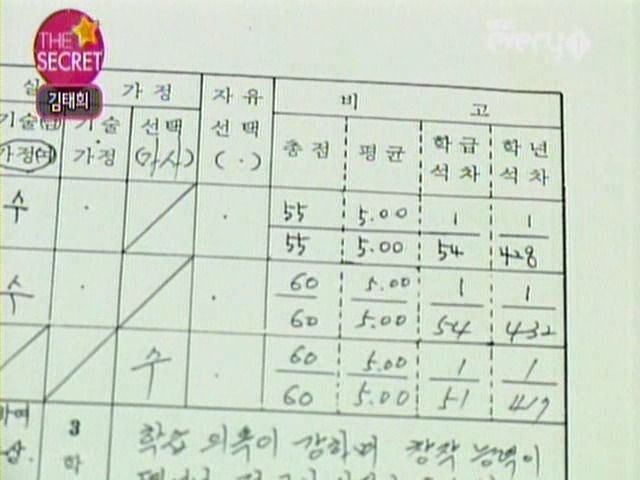 THE
SECRET
김태희
실 가 정 자 유 비 고
기술(남) 기 술 선택 선 택 총 점 평 균 학 급 학 년
가정(여) 가정 (가사) ( . ) 석 차 석 차
수 55 5.00 1 1
55 5.00 54 428
수 60 5.00 1 1
60 5.00 54 432
수 60 5.00 1 1
60 5.00 51 417
하여 3 학습 의욕이 강하며 창작 능력이
상. 학